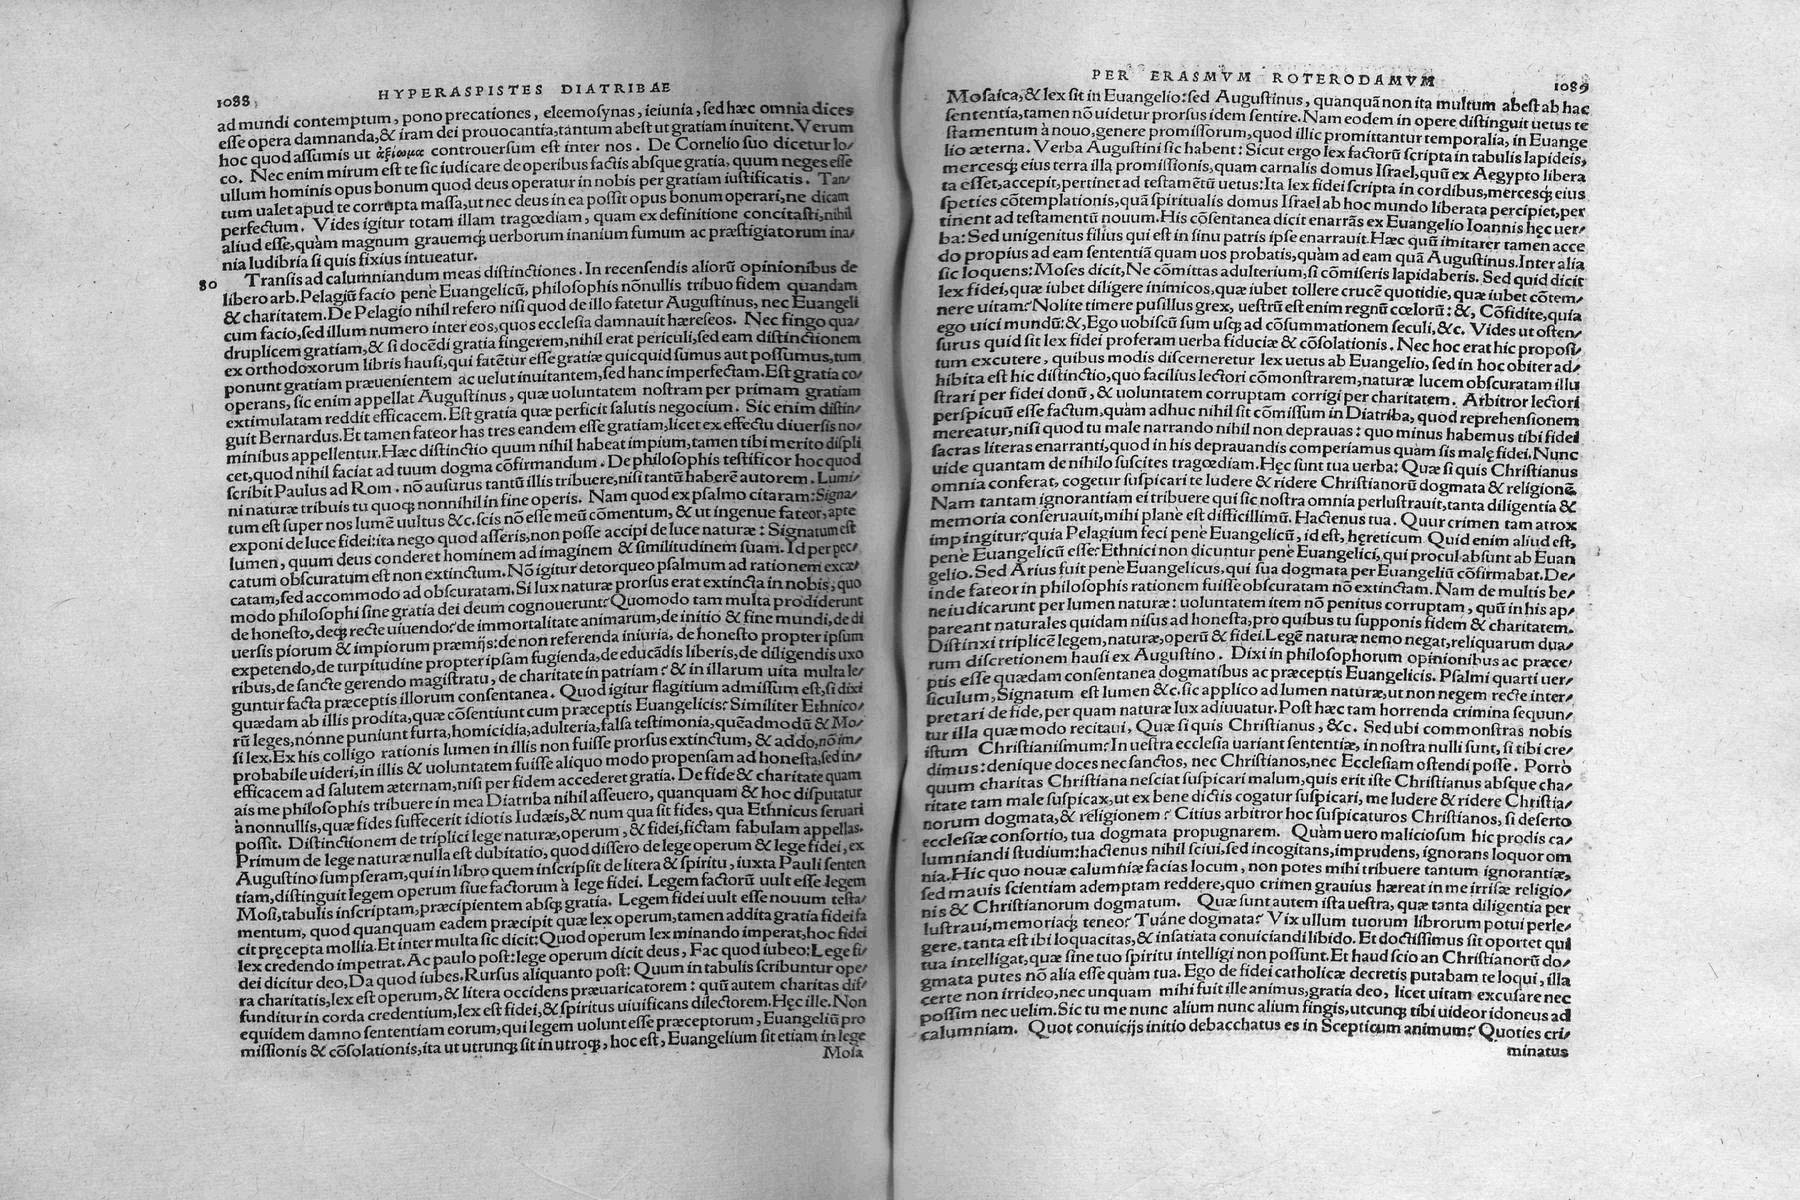 1088
HYPERASPISTES DIATRIBAE
ad mundi contemptum, pono precationes, eleemosynas, ieiunia, sed hæc omnia dices
esse opera damnanda, & iram dei prouocantia, tantum abest ut gratiam inuitent. Verum
hoc quod assumis ut ἀξίωμα controuersum est inter nos. De Cornelio suo dicetur lo/
co. Nec enim mirum est te sic iudicare de operibus factis absque gratia, quum neges esse
ullum hominis opus bonum quod deus operatur in nobis per gratiam iustificatis. Tan/
tum ualet apud te corrupta massa, ut nec deus in ea possit opus bonum operari, ne dicam
perfectum. Vides igitur totam illam tragœdiam, quam ex definitione concitasti, nihil
aliud esse, quàm magnum grauemq́; uerborum inanium fumum ac præstigiatorum ina/
nia ludibria si quis fixius intueatur.
80 Transis ad calumniandum meas distinctiones. In recensendis aliorũ opinionibus de
libero arb. Pelagiũ facio penè Euangelicũ, philosophis nõnullis tribuo fidem quandam
& charitatem. De Pelagio nihil refero nisi quod de illo fatetur Augustinus, nec Euangeli
cum facio, sed illum numero inter eos, quos ecclesia damnauit hæreseos. Nec fingo qua/
druplicem gratiam, & si docẽdi gratia fingerem, nihil erat periculi, sed eam distinctionem
ex orthodoxorum libris hausi, qui fatẽtur esse gratiæ quicquid sumus aut possumus, tum
ponunt gratiam præuenientem ac uelut inuitantem, sed hanc imperfectam. Est gratia co/
operans, sic enim appellat Augustinus, quæ uoluntatem nostram per primam gratiam
extimulatam reddit efficacem. Est gratia quæ perficit salutis negocium. Sic enim distin/
guit Bernardus. Et tamen fateor has tres eandem esse gratiam, licet ex effectu diuersis no/
minibus appellentur. Hæc distinctio quum nihil habeat impium, tamen tibi merito displi
cet, quod nihil faciat ad tuum dogma cõfirmandum. De philosophis testificor hoc quod
scribit Paulus ad Rom. nõ ausurus tantũ illis tribuere, nisi tantũ haberẽ autorem. Lumi/
ni naturæ tribuis tu quoq; nonnihil in fine operis. Nam quod ex psalmo citaram: Signa/
tum est super nos lumẽ uultus &c. scis nõ esse meũ cõmentum, & ut ingenue fateor, apte
exponi de luce fidei: ita nego quod asseris, non posse accipi de luce naturæ: Signatum est
lumen, quum deus conderet hominem ad imaginem & similitudinem suam. Id per pec/
catum obscuratum est non extinctum. Nõ igitur detorqueo psalmum ad rationem excæ/
catam, sed accommodo ad obscuratam. Si lux naturæ prorsus erat extincta in nobis, quo
modo philosophi sine gratia dei deum cognouerunt? Quomodo tam multa prodiderunt
de honesto, deq; recte uiuendo? de immortalitate animarum, de initio & fine mundi, de di
uersis piorum & impiorum præmijs: de non referenda iniuria, de honesto propter ipsum
expetendo, de turpitudine propter ipsam fugienda, de educãdis liberis, de diligendis uxo
ribus, de sancte gerendo magistratu, de charitate in patriam? & in illarum uita multa le/
guntur facta præceptis illorum consentanea. Quod igitur flagitium admissum est, si dixi
quædam ab illis prodita, quæ cõsentiunt cum præceptis Euangelicis? Similiter Ethnico/
rũ leges, nónne puniunt furta, homicidia, adulteria, falsa testimonia, quẽadmodũ & Mo/
si lex. Ex his colligo rationis lumen in illis non fuisse prorsus extinctum, & addo, nõ im/
probabile uideri, in illis & uoluntatem fuisse aliquo modo propensam ad honesta, sed in/
efficacem ad salutem æternam, nisi per fidem accederet gratia. De fide & charitate quam
ais me philosophis tribuere in mea Diatriba nihil asseuero, quanquam & hoc disputatur
à nonnullis, quæ fides suffecerit idiotis Iudæis, & num qua sit fides, qua Ethnicus seruari
possit. Distinctionem de triplici lege naturæ, operum, & fidei, fictam fabulam appellas.
Primum de lege naturæ nulla est dubitatio, quod dissero de lege operum & lege fidei, ex
Augustino sumpseram, qui in libro quem inscripsit de litera & spiritu, iuxta Pauli senten
tiam, distinguit legem operum siue factorum à lege fidei. Legem factorũ uult esse legem
Mosi, tabulis inscriptam, præcipientem absq; gratia. Legem fidei uult esse nouum testa/
mentum, quod quanquam eadem præcipit quæ lex operum, tamen addita gratia fidei fa
cit pręcepta mollia. Et inter multa sic dicit: Quod operum lex minando imperat, hoc fidei
lex credendo impetrat. Ac paulo post: lege operum dicit deus, Fac quod iubeo: Lege fi/
dei dicitur deo, Da quod iubes. Rursus aliquanto post: Quum in tabulis scribuntur ope/
ra charitatis, lex est operum, & litera occidens præuaricatorem: quũ autem charitas dif/
funditur in corda credentium, lex est fidei, & spiritus uiuificans dilectorem. Hęc ille. Non
equidem damno sententiam eorum, qui legem uolunt esse præceptorum, Euangeliũ pro
missionis & cõsolationis, ita ut utrunq; sit in utroq;, hoc est, Euangelium sit etiam in lege
Mosa
PER ERASMVM ROTERODAMVM
1089
Mosaica, & lex sit in Euangelio: sed Augustinus, quanquã non ita multum abest ab hac
sententia, tamen nõ uidetur prorsus idem sentire. Nam eodem in opere distinguit uetus te
stamentum à nouo, genere promissorum, quod illic promittantur temporalia, in Euange
lio æterna. Verba Augustini sic habent: Sicut ergo lex factorũ scripta in tabulis lapideis,
mercesq; eius terra illa promissionis, quam carnalis domus Israel, quũ ex Aegypto libera
ta esset, accepit, pertinet ad testamẽtũ uetus: Ita lex fidei scripta in cordibus, mercesq; eius
species cõtemplationis, quã spiritualis domus Israel ab hoc mundo liberata percipiet, per
tinent ad testamentũ nouum. His cõsentanea dicit enarrãs ex Euangelio Ioannis hęc uer/
ba: Sed unigenitus filius qui est in sinu patris ipse enarrauit. Hæc quũ imitarer tamen acce
do propius ad eam sententiã quam uos probatis, quàm ad eam quã Augustinus. Inter alia
sic loquens: Moses dicit, Ne cõmittas adulterium, si cõmiseris lapidaberis. Sed quid dicit
lex fidei, quæ iubet diligere inimicos, quæ iubet tollere crucẽ quotidie, quæ iubet cõtem/
nere uitam? Nolite timere pusillus grex, uestrũ est enim regnũ cœlorũ: &, Cõfidite, quia
ego uici mundũ: &, Ego uobiscũ sum usq; ad cõsummationem seculi, &c. Vides ut osten/
surus quid sit lex fidei proferam uerba fiduciæ & cõsolationis. Nec hoc erat hic proposi/
tum excutere, quibus modis discerneretur lex uetus ab Euangelio, sed in hoc obiter ad/
hibita est hic distinctio, quo facilius lectori cõmonstrarem, naturæ lucem obscuratam illu
strari per fidei donũ, & uoluntatem corruptam corrigi per charitatem. Arbitror lectori
perspicuũ esse factum, quàm adhuc nihil sit cõmissum in Diatriba, quod reprehensionem
mereatur, nisi quod tu male narrando nihil non deprauas: quo minus habemus tibi fidei
sacras literas enarranti, quod in his deprauandis comperiamus quàm sis malę fidei. Nunc
uide quantam de nihilo suscites tragœdiam. Hęc sunt tua uerba: Quæ si quis Christianus
omnia conferat, cogetur suspicari te ludere & ridere Christianorũ dogmata & religionẽ.
Nam tantam ignorantiam ei tribuere qui sic nostra omnia perlustrauit, tanta diligentia &
memoria conseruauit, mihi planè est difficillimũ. Hactenus tua. Quur crimen tam atrox
impingitur? quia Pelagium feci penè Euangelicũ, id est, hęreticum Quid enim aliud est,
penè Euangelicũ esse? Ethnici non dicuntur penè Euangelici, qui procul absunt ab Euan
gelio. Sed Arius fuit penè Euangelicus, qui sua dogmata per Euangeliũ cõfirmabat. De/
inde fateor in philosophis rationem fuisse obscuratam nõ extinctam. Nam de multis be/
ne iudicarunt per lumen naturæ: uoluntatem item nõ penitus corruptam, quũ in his ap/
pareant naturales quidam nisus ad honesta, pro quibus tu supponis fidem & charitatem.
Distinxi triplicẽ legem, naturæ, operũ & fidei. Legẽ naturæ nemo negat, reliquarum dua/
rum discretionem hausi ex Augustino. Dixi in philosophorum opinionibus ac præce/
ptis esse quædam consentanea dogmatibus ac præceptis Euangelicis. Psalmi quarti uer/
siculum, Signatum est lumen &c. sic applico ad lumen naturæ, ut non negem recte inter/
pretari de fide, per quam naturæ lux adiuuatur. Post hæc tam horrenda crimina sequun/
tur illa quæ modo recitaui, Quæ si quis Christianus, &c. Sed ubi commonstras nobis
istum Christianismum? In uestra ecclesia uariant sententiæ, in nostra nulli sunt, si tibi cre/
dimus: denique doces nec sanctos, nec Christianos, nec Ecclesiam ostendi posse. Porrò
quum charitas Christiana nesciat suspicari malum, quis erit iste Christianus absque cha/
ritate tam male suspicax, ut ex bene dictis cogatur suspicari, me ludere & ridere Christia/
norum dogmata, & religionem? Citius arbitror hoc suspicaturos Christianos, si deserto
ecclesiæ consortio, tua dogmata propugnarem. Quàm uero maliciosum hic prodis ca/
lumniandi studium: hactenus nihil sciui, sed incogitans, imprudens, ignorans loquor om
nia. Hic quo nouæ calumniæ facias locum, non potes mihi tribuere tantum ignorantiæ,
sed mauis scientiam ademptam reddere, quo crimen grauius hæreat in me irrisæ religio/
nis & Christianorum dogmatum. Quæ sunt autem ista uestra, quæ tanta diligentia per
lustraui, memoriaq́; teneo? Tuáne dogmata? Vix ullum tuorum librorum potui perle/
gere, tanta est ibi loquacitas, & insatiata conuiciandi libido. Et doctissimus sit oportet qui
tua intelligat, quæ sine tuo spiritu intelligi non possunt. Et haud scio an Christianorũ do/
gmata putes nõ alia esse quàm tua. Ego de fidei catholicæ decretis putabam te loqui, illa
certe non irrideo, nec unquam mihi fuit ille animus, gratia deo, licet uitam excusare nec
possim nec uelim. Sic tu me nunc alium nunc alium fingis, utcunq; tibi uideor idoneus ad
calumniam. Quot conuicijs initio debacchatus es in Scepticum animum? Quoties cri/
minatus